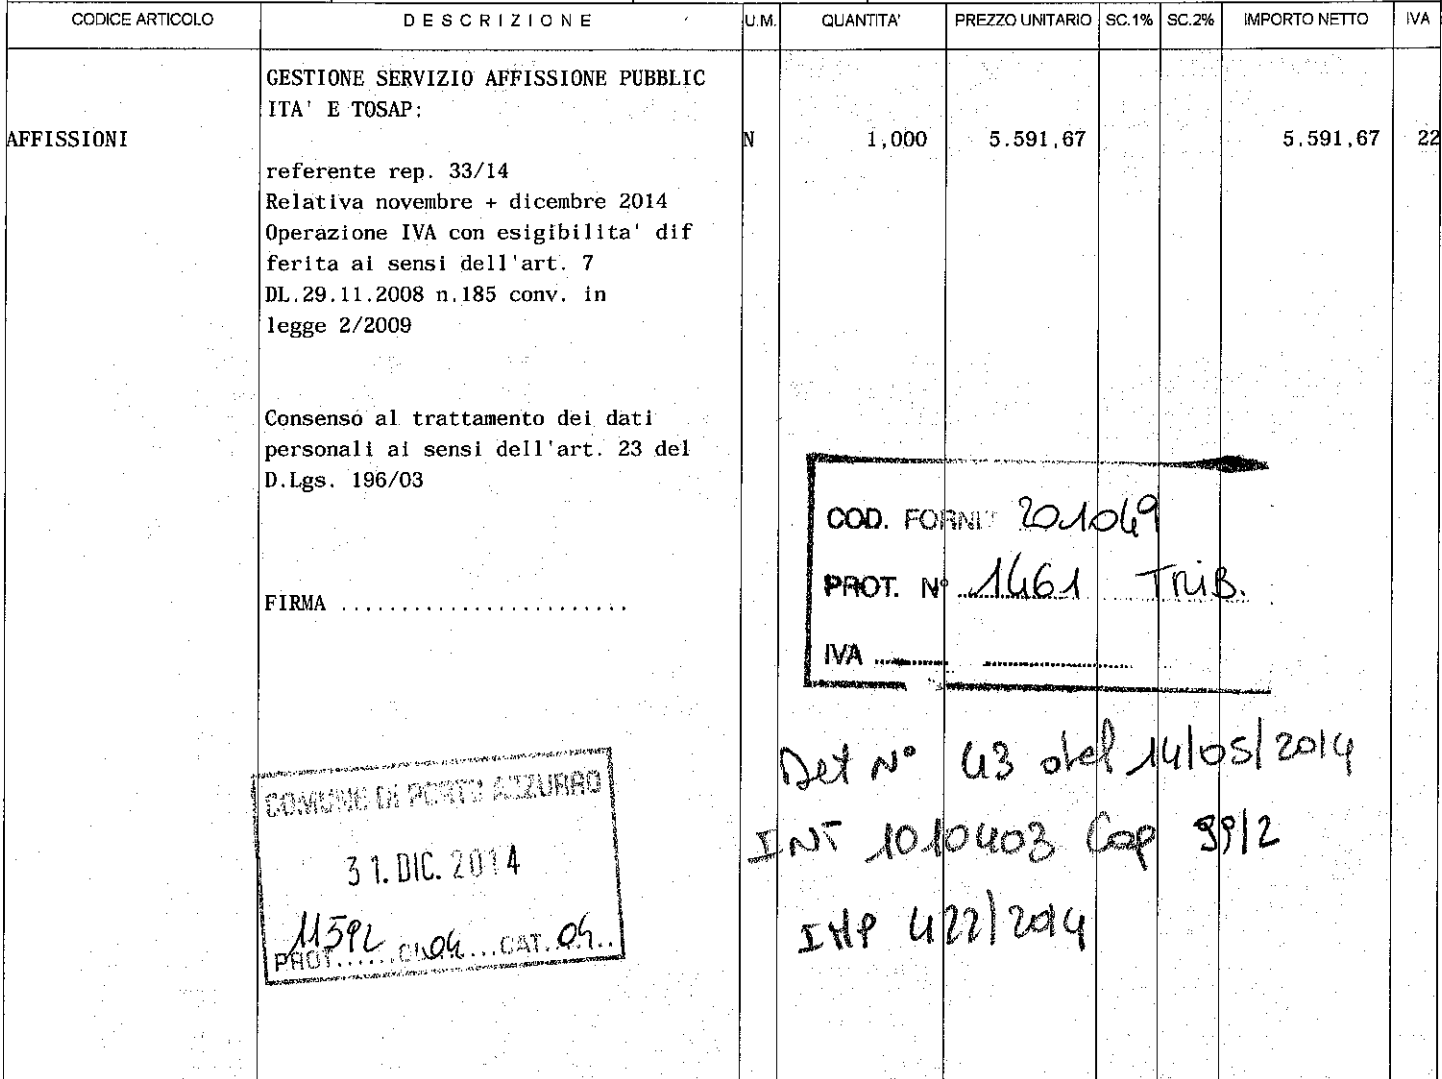 CODICE ARTICOLO DESCRIZIONE U.M. QUANTITA' PREZZO UNITARIO SC.1% SC.2% IMPORTO NETTO IVA
GESTIONE SERVIZIO AFFISSIONE PUBBLIC
ITA' E TOSAP:
AFFISSIONI N 1,000 5.591,67 5.591,67 22
referente rep. 33/14
Relativa novembre + dicembre 2014
Operazione IVA con esigibilita' dif
ferita ai sensi dell'art. 7
DL.29.11.2008 n.185 conv. in
legge 2/2009
Consenso al trattamento dei dati
personali ai sensi dell'art. 23 del
D.Lgs. 196/03
FIRMA ........................
COD. FORNIT 201049
PROT. N° 1461 TRIB.
IVA
Det N° 43 del 14/05/2014
INT 1010403 Cap 99/2
IMP 422/2014
COMUNE DI PORTO AZZURRO
31. DIC. 2014
PROT. 11592 CL. 04 CAT. 04